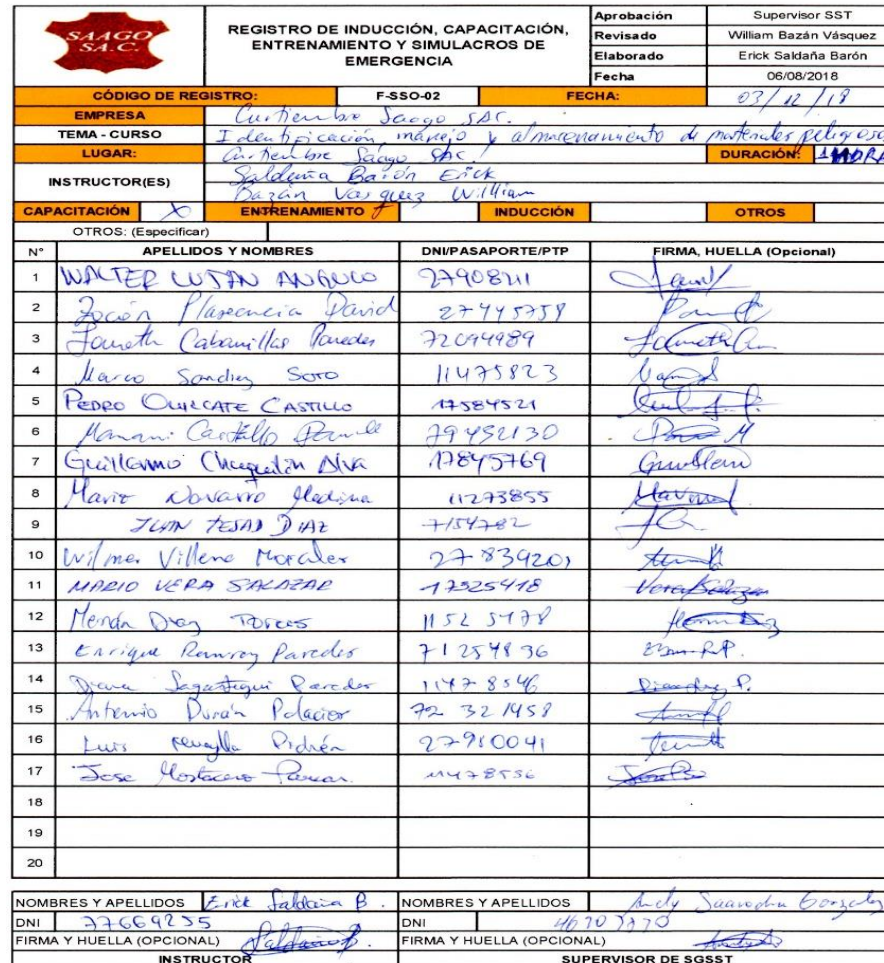 SAAGO
S.A.C.
REGISTRO DE INDUCCIÓN, CAPACITACIÓN,
ENTRENAMIENTO Y SIMULACROS DE
EMERGENCIA
Aprobación Supervisor SST
Revisado William Bazán Vásquez
Elaborado Erick Saldaña Barón
Fecha 06/08/2018
CÓDIGO DE REGISTRO: F-SSO-02 FECHA: 03/12/18
EMPRESA Curtiembre Saago SAC.
TEMA - CURSO Identificación manejo y almacenamiento de materiales peligrosos
LUGAR: Curtiembre Saago SAC. DURACIÓN: 1 HORA
INSTRUCTOR(ES) Saldaña Barón Erick
Bazán Vasquez William
CAPACITACIÓN X ENTRENAMIENTO INDUCCIÓN OTROS
OTROS: (Especificar)
N° APELLIDOS Y NOMBRES DNI/PASAPORTE/PTP FIRMA, HUELLA (Opcional)
1 WALTER LUJAN ANGULO
2 Plasencia David 27445758
3 Cabanillas Paredes 72094989
4 Marco Sandiez Soto 11475823
5 PEDRO CASTILLO 17584521
6 Mamani Castillo 79452130
7 Guillermo Alva 17845769
8 Mario Navarro Medina 11273855
9 JUAN DIAZ 7154782
10 Wilmer Villena Morales
11 MARIO VERA SALAZAR 17525418
12 Torres 11525478
13 Enrique Paredes 71254836
14 Diana Sagastegui Paredes 11478546
15 Antemio Durán Palacios 72321458
16 Luis 27980041
17 Jose 11478536
18
19
20
NOMBRES Y APELLIDOS Erick Saldaña B. NOMBRES Y APELLIDOS Saavedra Gonzalez
DNI 77669255 DNI
FIRMA Y HUELLA (OPCIONAL) FIRMA Y HUELLA (OPCIONAL)
INSTRUCTOR SUPERVISOR DE SGSST